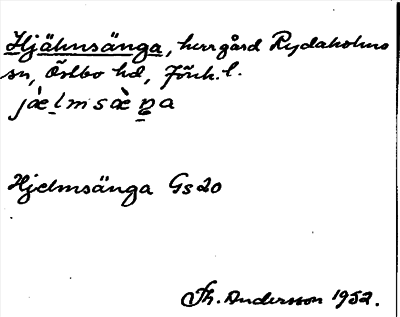 Hjälmsänga, herrgård Rydaholms
sn, Östbo hd, Jönk. l.
jæ̀lmsæ̀ŋa
Hjelmsänga Gs20
Th. Andersson 1952.